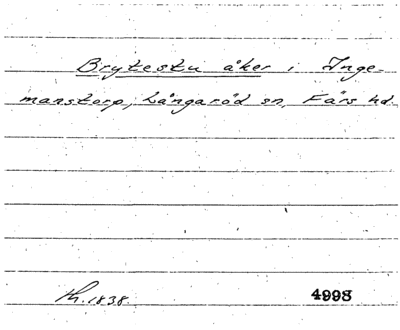 Brytestu åker i Inge-
manstorp, Långaröd sn, Färs hd.
Kh. 1838. 4998